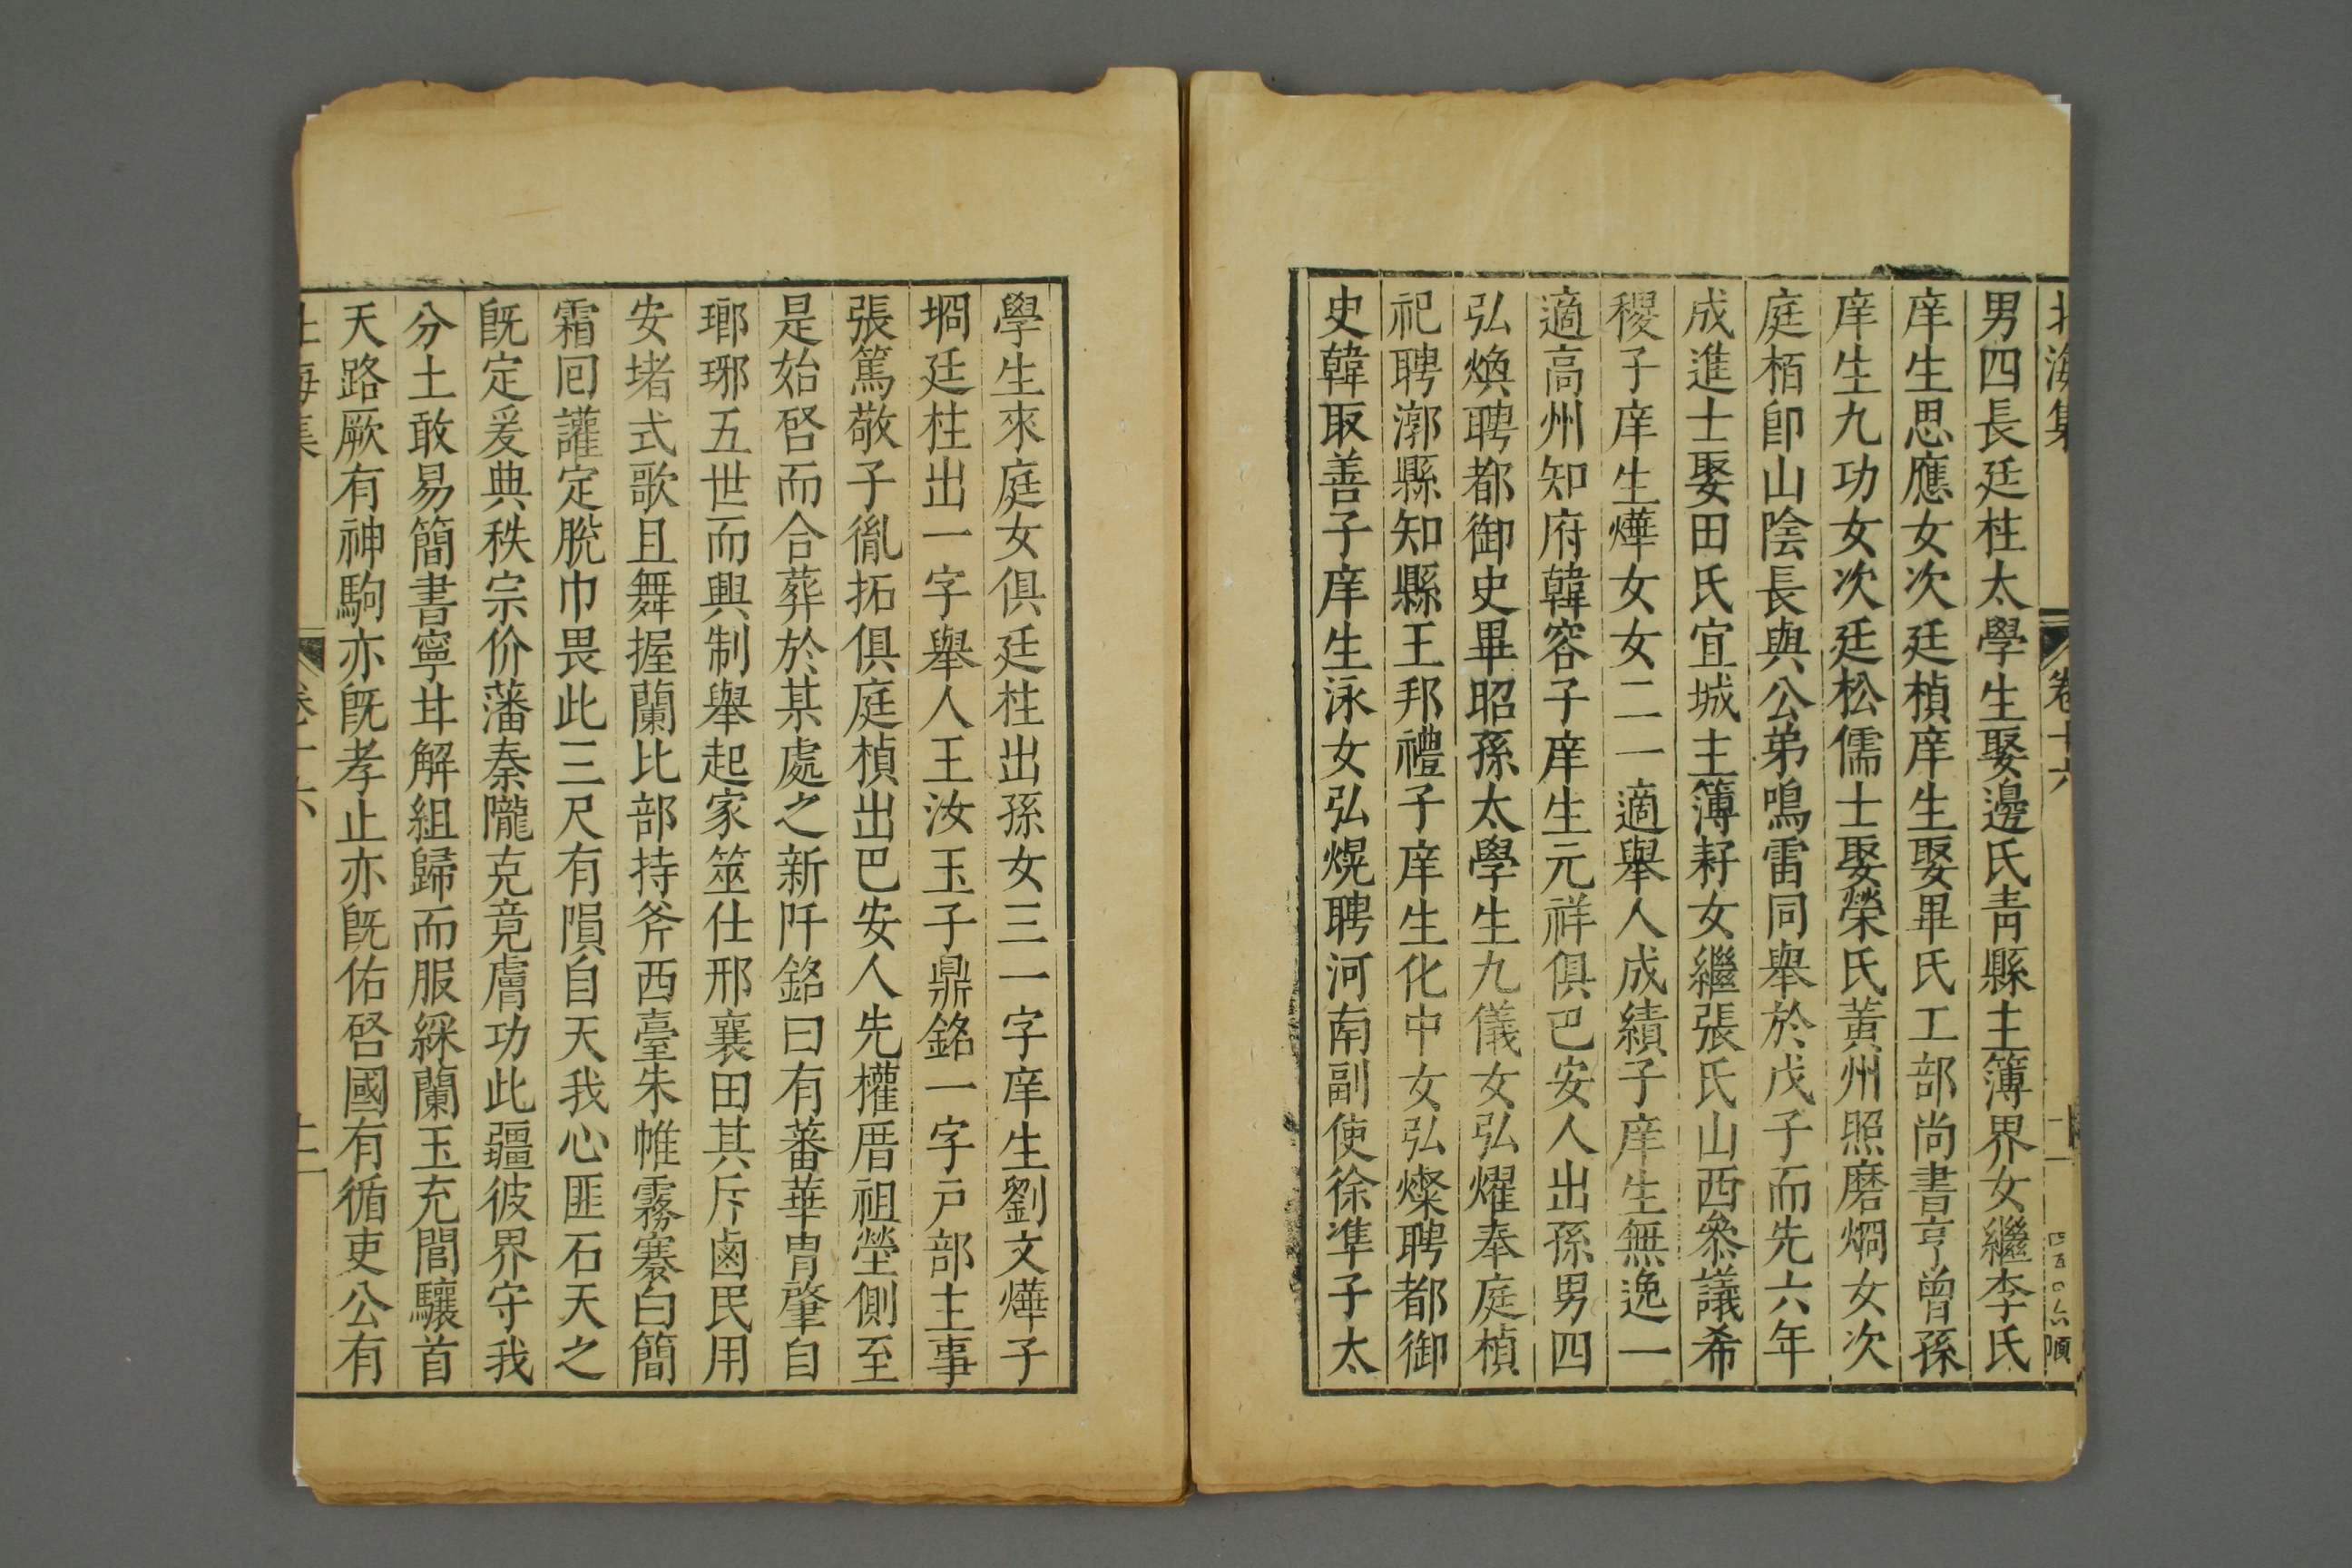 北海集 卷十六
男四長廷柱太學生娶邊氏青縣主簿界女繼李氏
庠生思應女次廷楨庠生娶畢氏工部尚書亨曾孫
庠生九功女次廷松儒士娶榮氏黃州照磨烱女次
庭栢卽山陰長與公弟鳴雷同舉於戊子而先六年
成進士娶田氏宜城主簿耔女繼張氏山西叅議希
稷子庠生燁女女二一適舉人成績子庠生無逸一
適高州知府韓容子庠生元祥俱邑安人出孫男四
弘煥聘都御史畢昭孫太學生九儀女弘燿奉庭楨
祀聘漷縣知縣王邦禮子庠生化中女弘燦聘都御
史韓取善子庠生泳女弘熀聘河南副使徐準子太
學生來庭女俱廷柱出孫女三一字庠生劉文燁子
埛廷柱出一字舉人王汝玉子鼎銘一字戶部主事
張篤敬子胤拓俱庭楨出巴安人先權厝祖塋側至
是始啓而合葬於某處之新阡銘曰有蕃華胄肇自
瑯琊五世而興制舉起家筮仕邢襄田其斥鹵民用
安堵式歌且舞握蘭比部持斧西臺朱帷霧褰白簡
霜囘讙定脫巾畏此三尺有隕自天我心匪石天之
旣定爰典秩宗价藩秦隴克竟膚功此疆彼界守我
分土敢易簡書寧甘解組歸而服綵蘭玉充閭驤首
天路厥有神駒亦旣孝止亦旣佑啓國有循吏公有